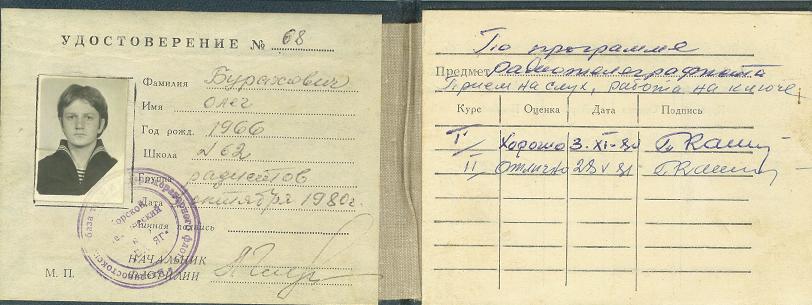 УДОСТОВЕРЕНИЕ № 68
Фамилия Буракович
Имя Олег
Год рожд. 1966
Школа №62
Группа радистов
Дата октября 1980г.
Личная подпись
НАЧАЛЬНИК
ФЛОТИЛИИ
М. П.
По программе
Предмет радиотелеграфиста
Прием на слух, работа на ключе
Курс Оценка Дата Подпись
I Хорошо 3-XI-80
II Отлично 28 V 81